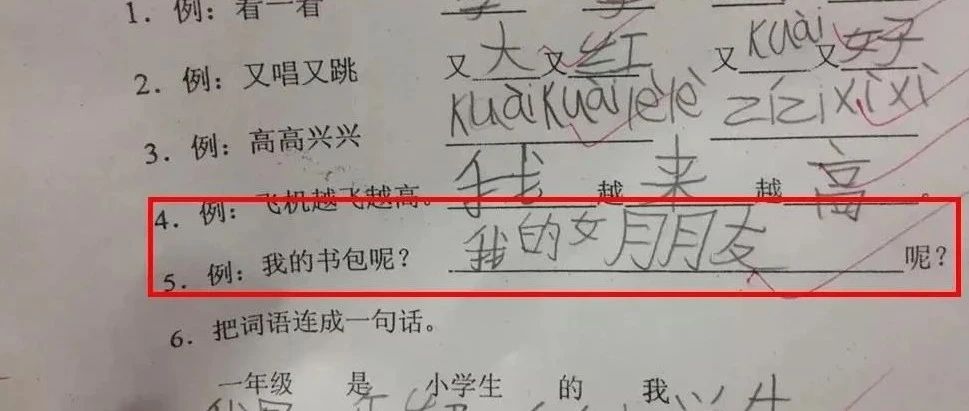 1. 例：看一看
2. 例：又唱又跳 又大又红 又kuài又好
3. 例：高高兴兴 kuàikuàilèlè zǐzǐxìxì
4. 例：飞机越飞越高。 我越来越高。
5. 例：我的书包呢？ 我的女朋友呢？
6. 把词语连成一句话。
一年级 是 小学生 的 我